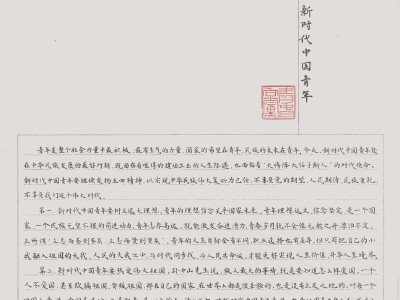 新时代中国青年
青年是整个社会力量中最积极、最有生气的力量，国家的希望在青年，民族的未来在青年。今天，新时代中国青年处
在中华民族发展的最好时期，既面临着难得的建功立业的人生际遇，也面临着“天将降大任于斯人”的时代使命。
新时代中国青年要继续发扬五四精神，以实现中华民族伟大复兴为己任，不辜负党的期望、人民期待、民族重托，
不辜负我们这个伟大时代。
第一，新时代中国青年要树立远大理想。青年的理想信念关乎国家未来。青年理想远大、信念坚定，是一个国
家、一个民族无坚不摧的前进动力。青年志存高远，就能激发奋进潜力，青春岁月就不会像无舵之舟漂泊不定。
正所谓“立志而圣则圣矣，立志而贤则贤矣”。青年的人生目标会有不同，职业选择也有差异，但只有把自己的小
我融入祖国的大我、人民的大我之中，与时代同步伐、与人民共命运，才能更好实现人生价值、升华人生境界。
第二，新时代中国青年要热爱伟大祖国。孙中山先生说，做人最大的事情，“就是要知道怎么样爱国”。一个
人不爱国，甚至欺骗祖国、背叛祖国，那在自己的国家、在世界上都是很丢脸的，也是没有立足之地的。